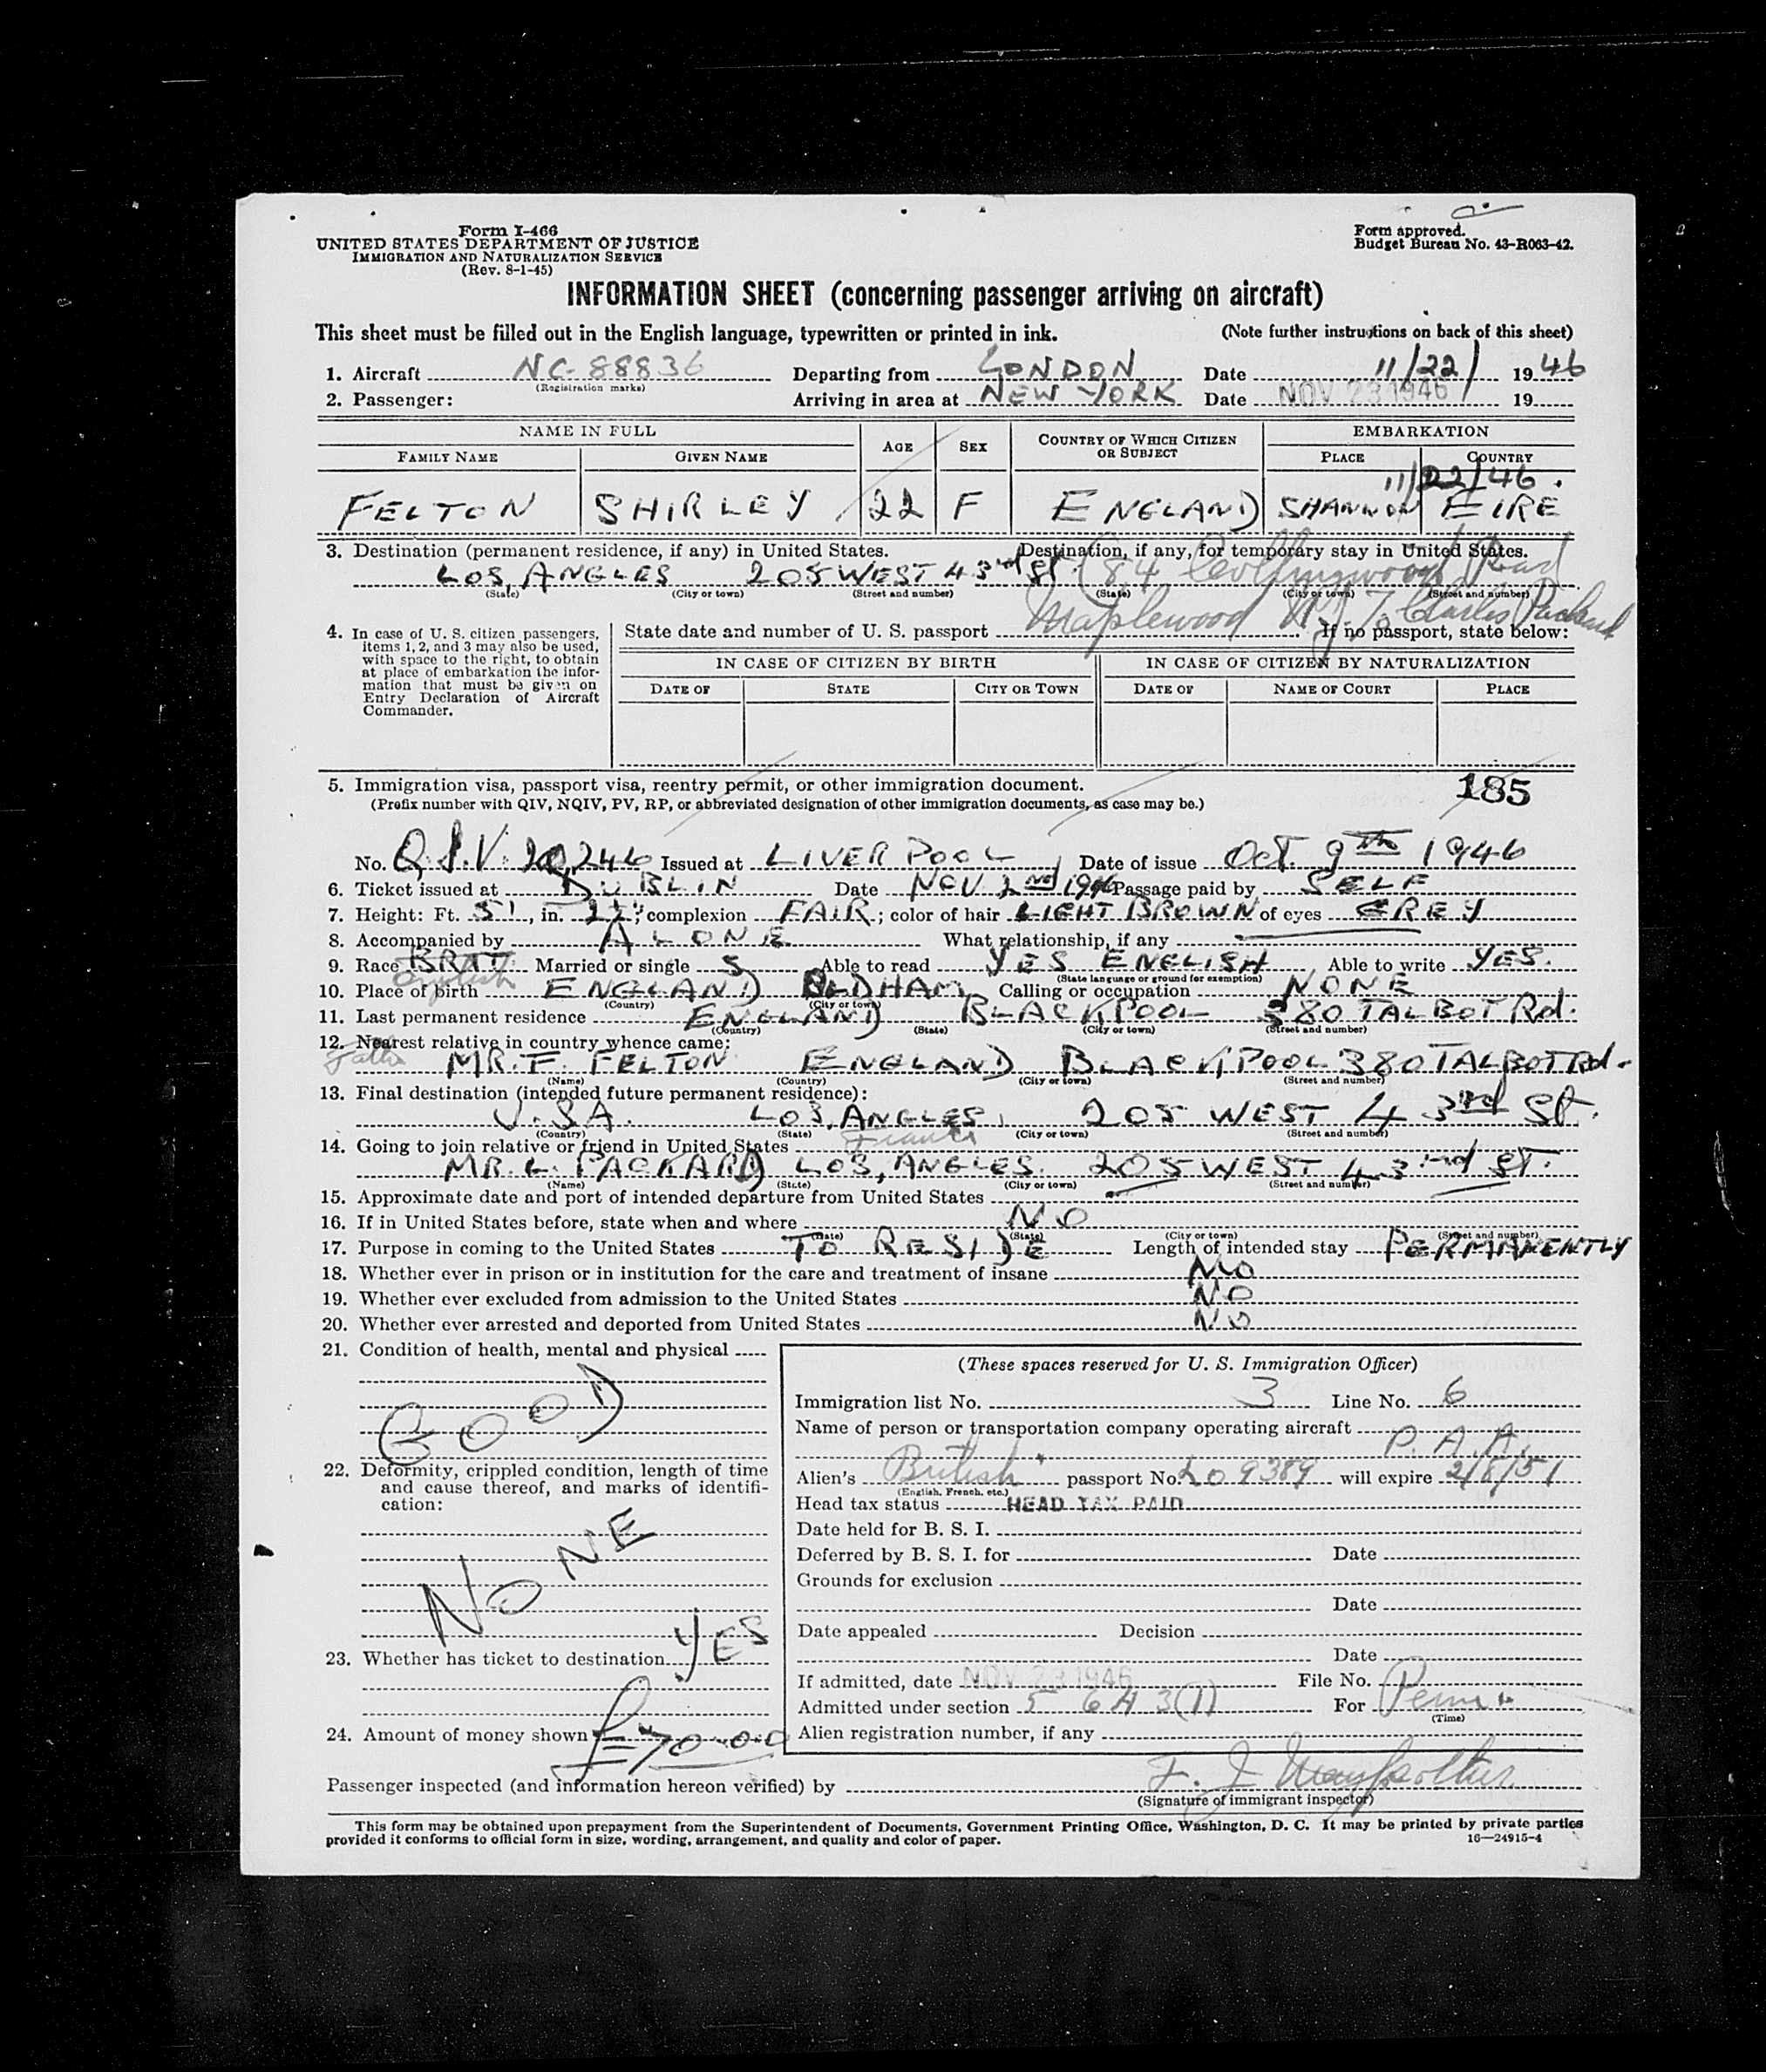 Form I-466
UNITED STATES DEPARTMENT OF JUSTICE
IMMIGRATION AND NATURALIZATION SERVICE
(Rev. 8-1-45)
Form approved.
Budget Bureau No. 43-R063-42.
INFORMATION SHEET (concerning passenger arriving on aircraft)
This sheet must be filled out in the English language, typewritten or printed in ink. (Note further instructions on back of this sheet)
1. Aircraft NC 88836 Departing from LONDON Date 11/22/ 1946
(Registration marks)
2. Passenger: Arriving in area at NEW YORK Date NOV 23 1946 19
NAME IN FULL AGE SEX COUNTRY OF WHICH CITIZEN OR SUBJECT EMBARKATION
FAMILY NAME GIVEN NAME PLACE COUNTRY
11/22/46.
FELTON SHIRLEY 22 F ENGLAND SHANNON EIRE
3. Destination (permanent residence, if any) in United States. Destination, if any, for temporary stay in United States.
LOS, ANGLES 205 WEST 43rd St. (84 Collingwood Road
(State) (City or town) (Street and number) (State) (City or town) (Street and number)
Maplewood N.J. To Charles Packard
4. In case of U. S. citizen passengers, items 1, 2, and 3 may also be used, with space to the right, to obtain at place of embarkation the information that must be given on Entry Declaration of Aircraft Commander.
State date and number of U. S. passport . If no passport, state below:
IN CASE OF CITIZEN BY BIRTH IN CASE OF CITIZEN BY NATURALIZATION
DATE OF STATE CITY OR TOWN DATE OF NAME OF COURT PLACE
5. Immigration visa, passport visa, reentry permit, or other immigration document. 185
(Prefix number with QIV, NQIV, PV, RP, or abbreviated designation of other immigration documents, as case may be.)
No. Q.I.V. 20246 Issued at LIVERPOOL Date of issue Oct. 9th 1946
6. Ticket issued at DUBLIN Date NOV 2nd 1946 Passage paid by SELF
7. Height: Ft. 5', in. ; complexion FAIR; color of hair LIGHT BROWN of eyes GREY
8. Accompanied by ALONE What relationship, if any
9. Race BRIT English Married or single S Able to read YES ENGLISH Able to write YES.
(State language or ground for exemption)
10. Place of birth ENGLAND OLDHAM Calling or occupation NONE
(Country) (City or town)
11. Last permanent residence ENGLAND BLACKPOOL 380 TALBOT Rd.
(Country) (State) (City or town) (Street and number)
12. Nearest relative in country whence came:
Father MR. F. FELTON ENGLAND BLACKPOOL 380 TALBOT Rd.
(Name) (Country) (City or town) (Street and number)
13. Final destination (intended future permanent residence):
U.S.A. LOS, ANGLES, 205 WEST 43rd St.
(Country) (State) (City or town) (Street and number)
14. Going to join relative or friend in United States
MR. L. PACKARD LOS, ANGLES. 205 WEST 43rd ST.
(Name) (State) (City or town) (Street and number)
15. Approximate date and port of intended departure from United States
16. If in United States before, state when and where NO
(Date) (State) (City or town) (Street and number)
17. Purpose in coming to the United States TO RESIDE Length of intended stay PERMANENTLY
18. Whether ever in prison or in institution for the care and treatment of insane NO
19. Whether ever excluded from admission to the United States NO
20. Whether ever arrested and deported from United States NO
21. Condition of health, mental and physical
GOOD
22. Deformity, crippled condition, length of time and cause thereof, and marks of identification:
NONE
23. Whether has ticket to destination YES
24. Amount of money shown £70-0-0
(These spaces reserved for U. S. Immigration Officer)
Immigration list No. 3 Line No. 6
Name of person or transportation company operating aircraft
P.A.A.
Alien's British passport No. 209389 will expire 2/8/51
(English, French, etc.)
Head tax status HEAD TAX PAID
Date held for B. S. I.
Deferred by B. S. I. for Date
Grounds for exclusion
Date
Date appealed Decision
Date
If admitted, date NOV 23 1946 File No.
Admitted under section 5 6A 3(1) For Perm
(Time)
Alien registration number, if any
Passenger inspected (and information hereon verified) by F. J.
(Signature of immigrant inspector)
This form may be obtained upon prepayment from the Superintendent of Documents, Government Printing Office, Washington, D. C. It may be printed by private parties
provided it conforms to official form in size, wording, arrangement, and quality and color of paper. 16—24915-4